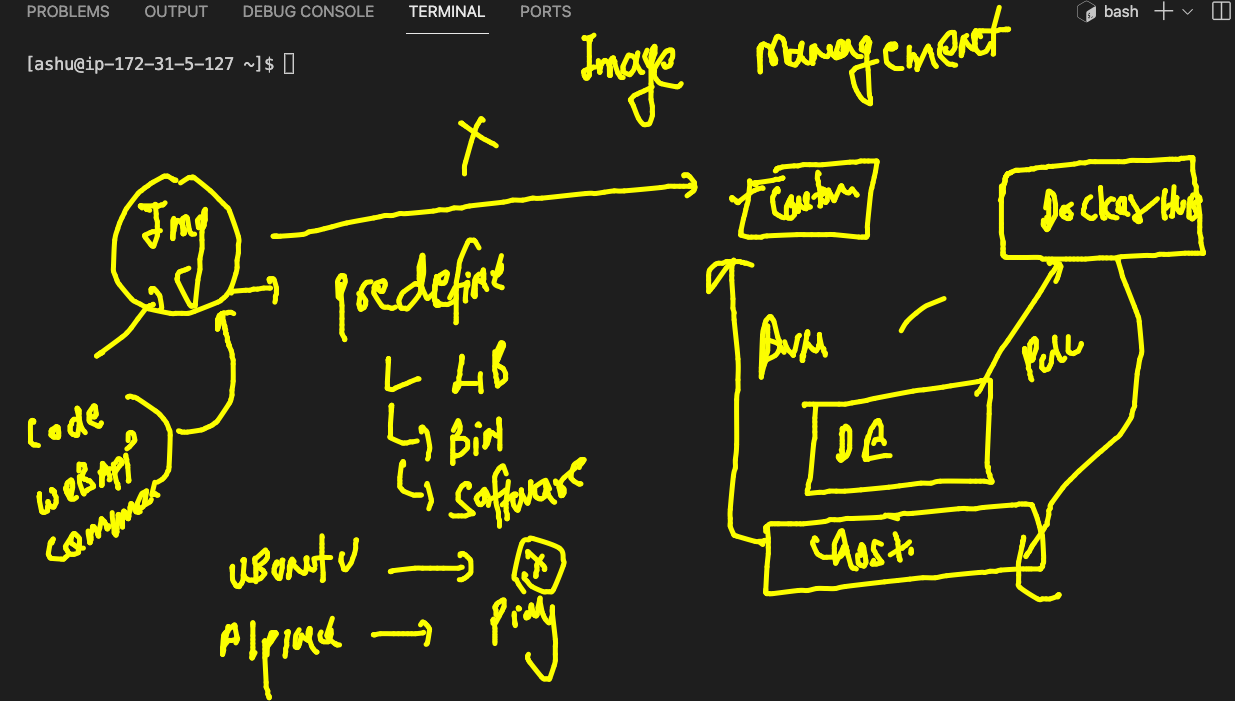 PROBLEMS OUTPUT DEBUG CONSOLE TERMINAL PORTS bash
[ashu@ip-172-31-5-127 ~]$
Image management
X
Img
DockerHub
predefine
LIB
BIN
Software
Pull
DE
Host
Code
WEBAPI
UBUNTU
X
Alpine
Ping